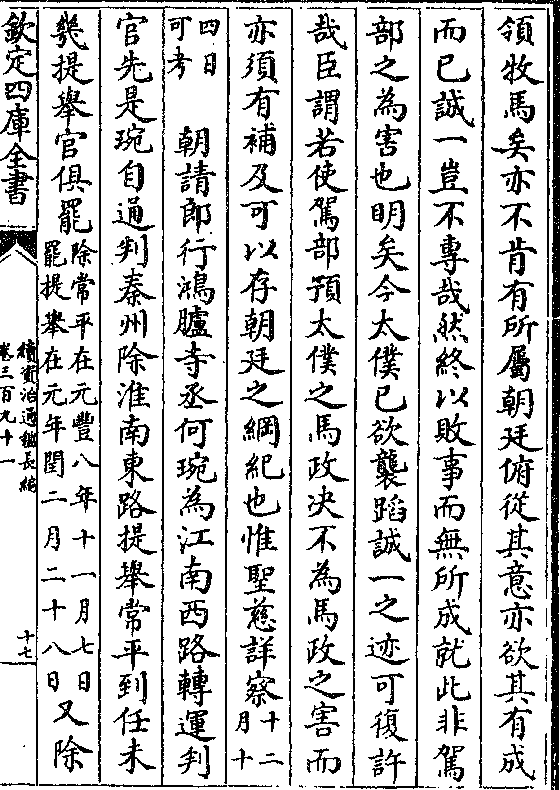 領牧馬矣亦不肯有所屬朝廷俯從其意亦欲其有成
而已誠一豈不專哉然終以敗事而無所成就此非駕
部之為害也明矣今太僕已欲襲蹈誠一之迹可復許
哉臣謂若使駕部預太僕之馬政决不為馬政之害而
亦須有補及可以存朝廷之綱紀也惟聖慈詳察十二月十
四日可考　朝請郎行鴻臚寺丞何琬為江南西路轉運判
官先是琬自通判秦州除淮南東路提舉常平到任未
㡬提舉官俱罷除常平在元豐八年十一月七日罷提舉在元年閏二月二十八日又除
欽定四庫全書
續資治通鑑長編
卷三百九十一
十七